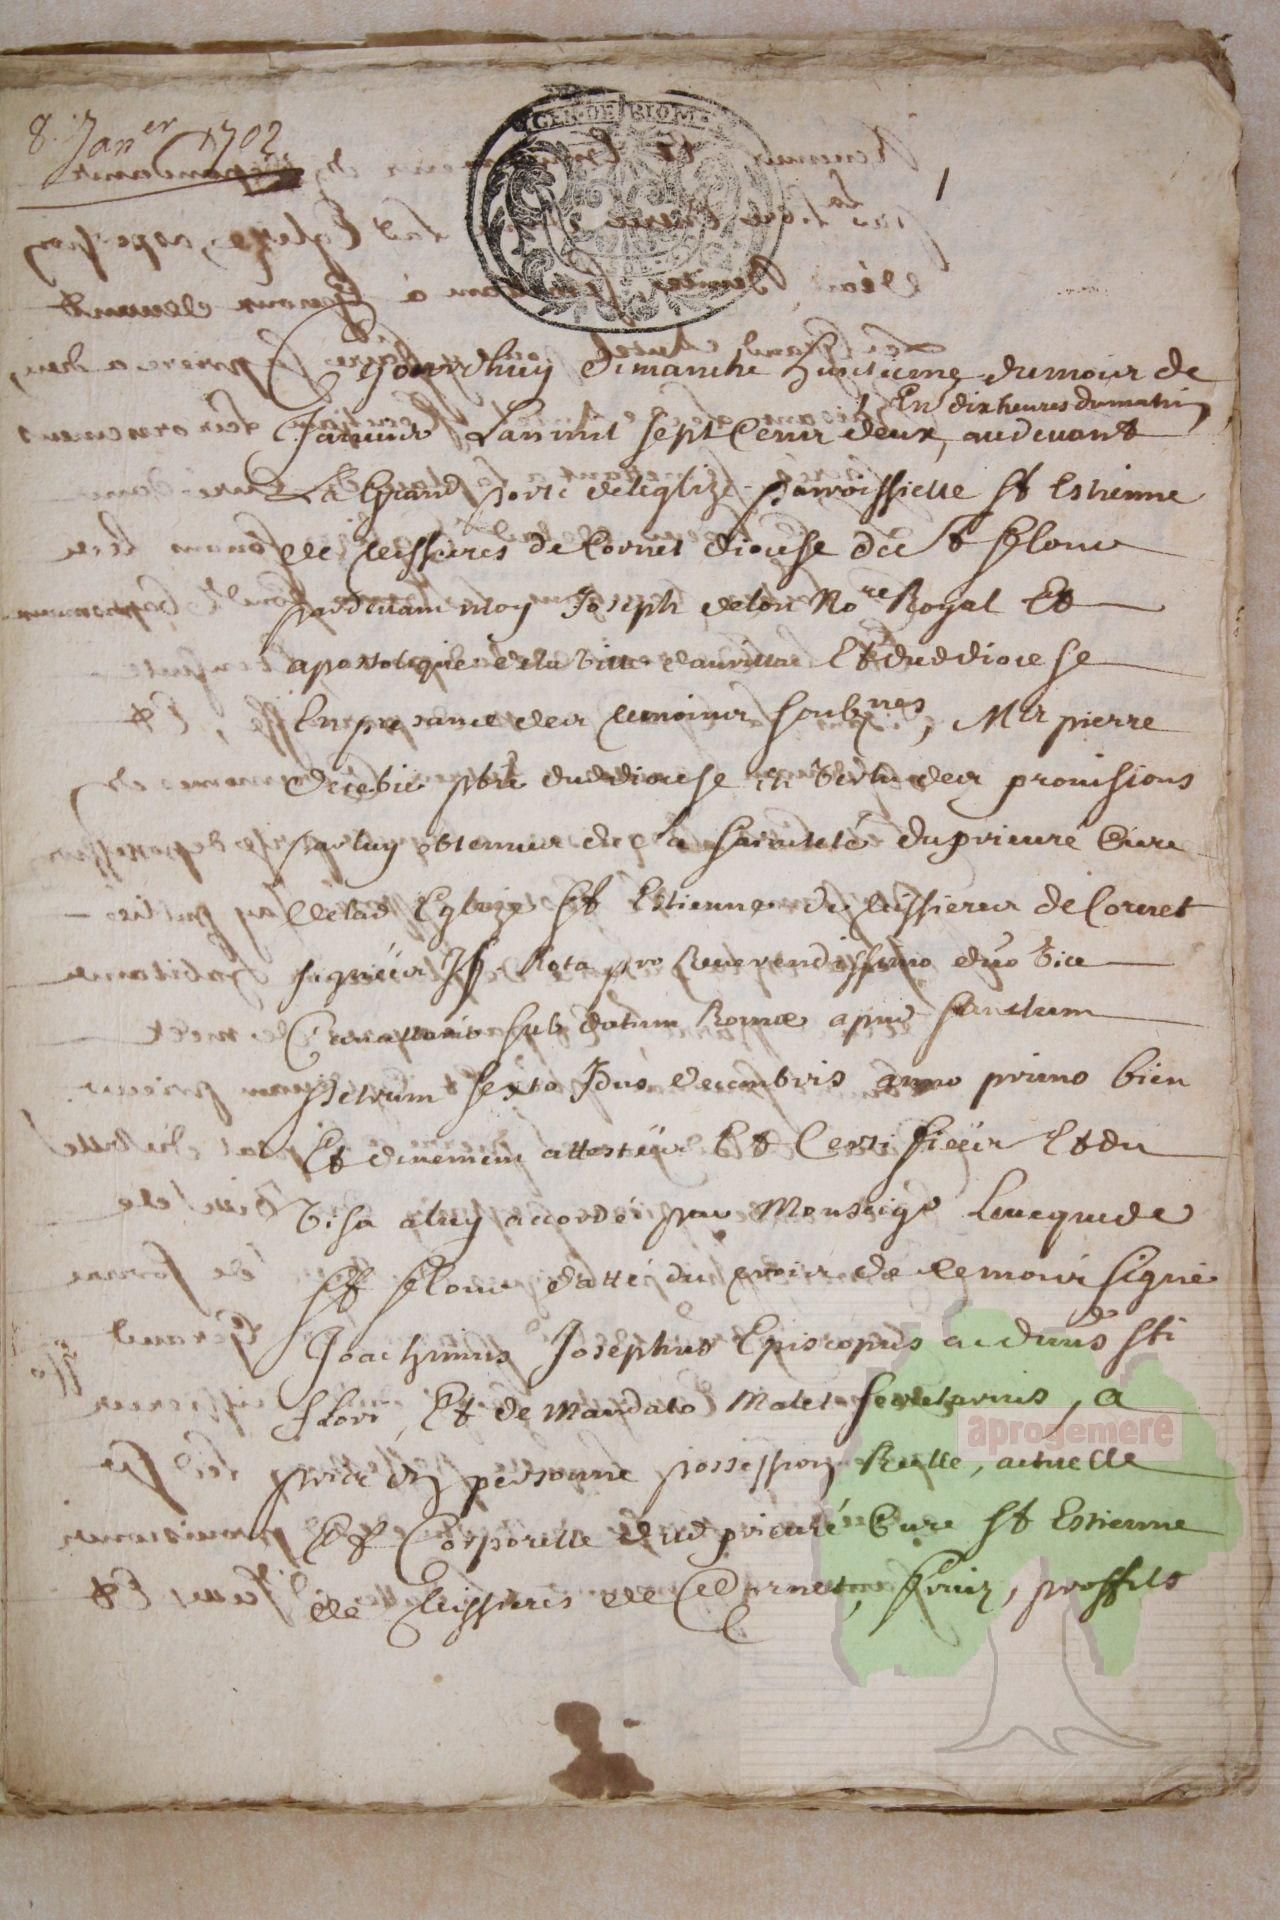 8. Jan.er 1702
GEN. DE RIOM
1
Cejourdhuy dimanche huictieme dumois de
En dix heures dumatin
Janvier Lanmil sept Cens deux, audevant
La Grand porte deleglize parroissielle St Estienne
de Teissieres de Cornet diocese de St flour
pardevant moy Joseph delort No.re Royal Et
apostolique dela Ville daurillac Et duddiocese
En presance des temoins soubznes, M.tre pierre
decebie pbre duddiocese en Vertu des provisions
parluy obtenues de La sainteté duprieuré Cure
delad Eglize St Estienne de teissieres de Cornet
signées Rota pro Reverendissimo dno Vice
sub datum Romæ apud sanctum
petrum sexto Idus decembris anno primo bien
Et duement attestées Et Certifiées Et du
Visa aluy accordé par Monseigr Leveque de
St flour datté du mois de signé
Joachimus Josephus Episcopus ac dnus sti
flori, Et de Mandato Malet secretarius, a
pris En personne possession Reelle, actuelle
Et Corporelle dud prieuré Cure St Estienne
de teissieres de Cornet, fruiz, proffits
aprogemere